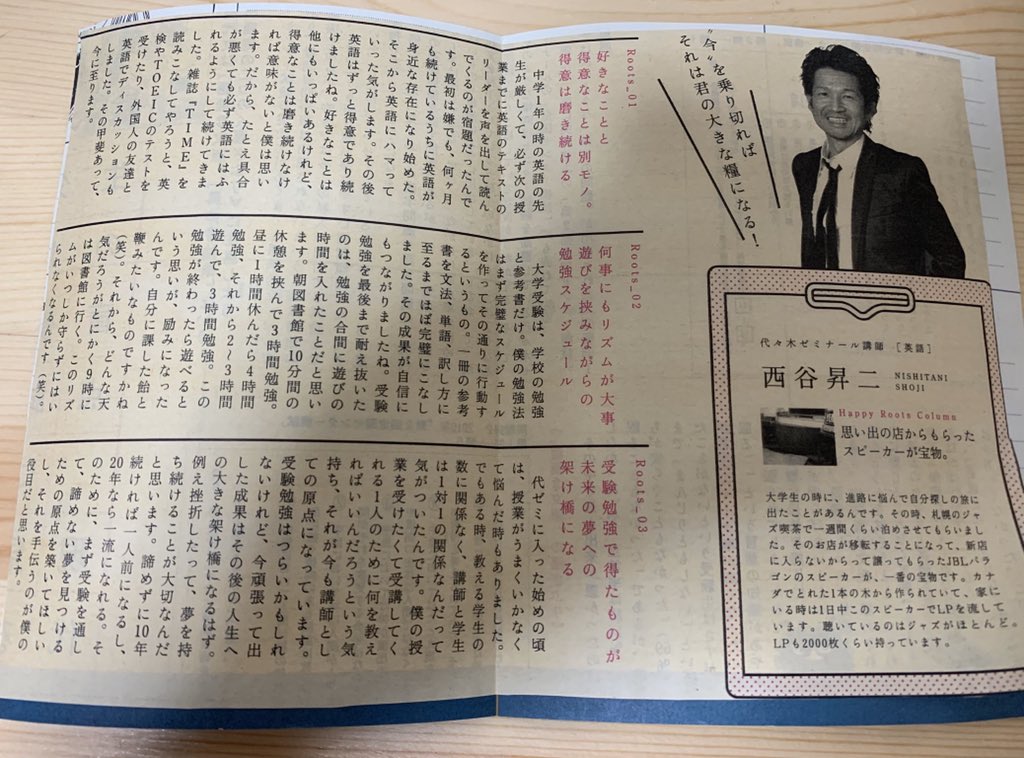 “今”を乗り切れば
それは君の大きな糧になる！
代々木ゼミナール講師 ［英語］
西谷昇二
NISHITANI
SHOJI
Happy Roots Column
思い出の店からもらった
スピーカーが宝物。
大学生の時に、進路に悩んで自分探しの旅に
出たことがあるんです。その時、札幌のジャ
ズ喫茶で一週間くらい泊めさせてもらいまし
た。そのお店が移転することになって、新店
に入らないからって譲ってもらったJBLパラ
ゴンのスピーカーが、一番の宝物です。カナ
ダでとれた1本の木から作られていて、家に
いる時は1日中このスピーカーでLPを流して
います。聴いているのはジャズがほとんど。
LPも2000枚くらい持っています。
Roots_01
好きなことと
得意なことは別モノ。
得意は磨き続ける
中学1年の時の英語の先
生が厳しくて、必ず次の授
業までに英語のテキストの
リーダーを声を出して読ん
でくるのが宿題だったんで
す。最初は嫌でも、何ヶ月
も続けているうちに英語が
身近な存在になり始めた。
そこから英語にハマって
いった気がします。その後
英語はずっと得意であり続
けましたね。好きなことは
他にもいっぱいあるけれど、
得意なことは磨き続けなけ
れば意味がないと僕は思い
ます。だから、たとえ具合
が悪くても必ず英語にはふ
れるようにして続けてきま
した。雑誌『TIME』を
読みこなしてやろうと、英
検やTOEICのテストを
受けたり、外国人の友達と
英語でディスカッションも
しました。その甲斐あって、
今に至ります。
Roots_02
何事にもリズムが大事
遊びを挟みながらの
勉強スケジュール
大学受験は、学校の勉強
と参考書だけ。僕の勉強法
はまず完璧なスケジュール
を作ってその通りに行動す
るというもの。一冊の参考
書を文法、単語、訳し方に
至るまでほぼ完璧にこなし
ました。その成果が自信に
もつながりましたね。受験
勉強を最後まで耐え抜いた
のは、勉強の合間に遊びの
時間を入れたことだと思い
ます。朝図書館で10分間の
休憩を挟んで3時間勉強。
昼に1時間休んだら4時間
勉強、それから2〜3時間
遊んで、3時間勉強。この
勉強が終わったら遊べると
いう思いが、励みになった
んです。自分に課した飴と
鞭みたいなものですかね
（笑）。それから、どんな天
気だろうがとにかく9時に
は図書館に行く。このリズ
ムがいつしか守らずにはい
られなくなるんです（笑）。
Roots_03
受験勉強で得たものが
未来の夢への
架け橋になる
代ゼミに入った始めの頃
は、授業がうまくいかなく
て悩んだ時もありました。
でもある時、教える学生の
数に関係なく、講師と学生
は1対1の関係なんだって
気がついたんです。僕の授
業を受けたくて受講してく
れる1人のために何を教え
ればいいんだろうという気
持ち、それが今も講師とし
ての原点になっています。
受験勉強はつらいかもしれ
ないけれど、今頑張って出
した成果はその後の人生へ
の大きな架け橋になるはず。
例え挫折したって、夢を持
ち続けることが大切なんだ
と思います。諦めずに10年
続ければ一人前になるし、
20年なら一流になれる。そ
のために、まず受験を通し
て、諦めない夢を見つける
ための原点を築いてほしい
し、それを手伝うのが僕の
役目だと思います。